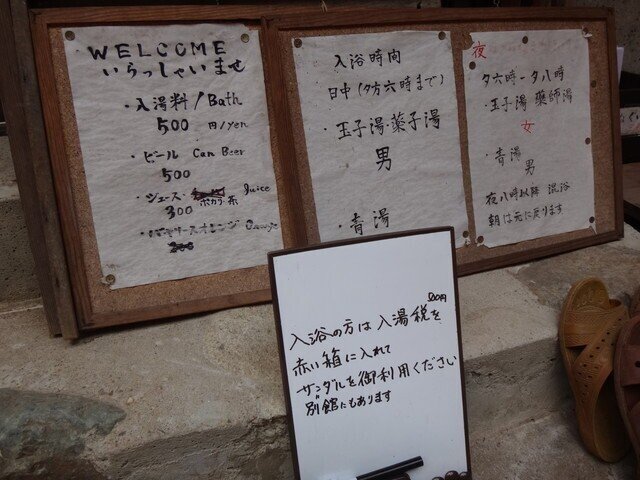 WELCOME
いらっしゃいませ
・入湯料/Bath
500 円/yen
・ビール Can Beer
500
・ジュース Juice
300 ポカリ系
・バヤリースオレンジ Orange
200
入浴時間
日中(夕方六時まで)
・玉子湯・薬子湯
男
・青湯
夜
夕六時ー夕八時
・玉子湯 薬師湯
女
・青湯
男
夜八時以降 混浴
朝は元に戻ります
500円
入浴の方は入湯税を
赤い箱に入れて
サンダルを御利用ください
別館にもあります